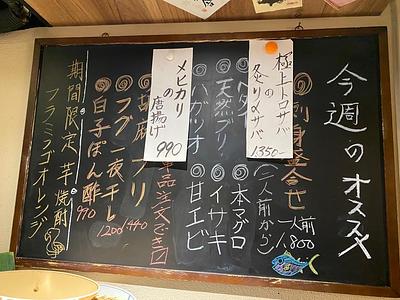 今週のオススメ
刺身盛合せ
一人前
1,800
(二人前から)
極上トロサバ
の
炙り〆サバ
1350-
本マグロ
天然ブリ
イサキ
ハガツオ
甘エビ
単品注文でき
メヒカリ
の
唐揚げ
990
ブリ
1440
フグ一夜干し
1200
白子ぽん酢
990
期間限定 芋焼酎
フラミンゴオレンジ